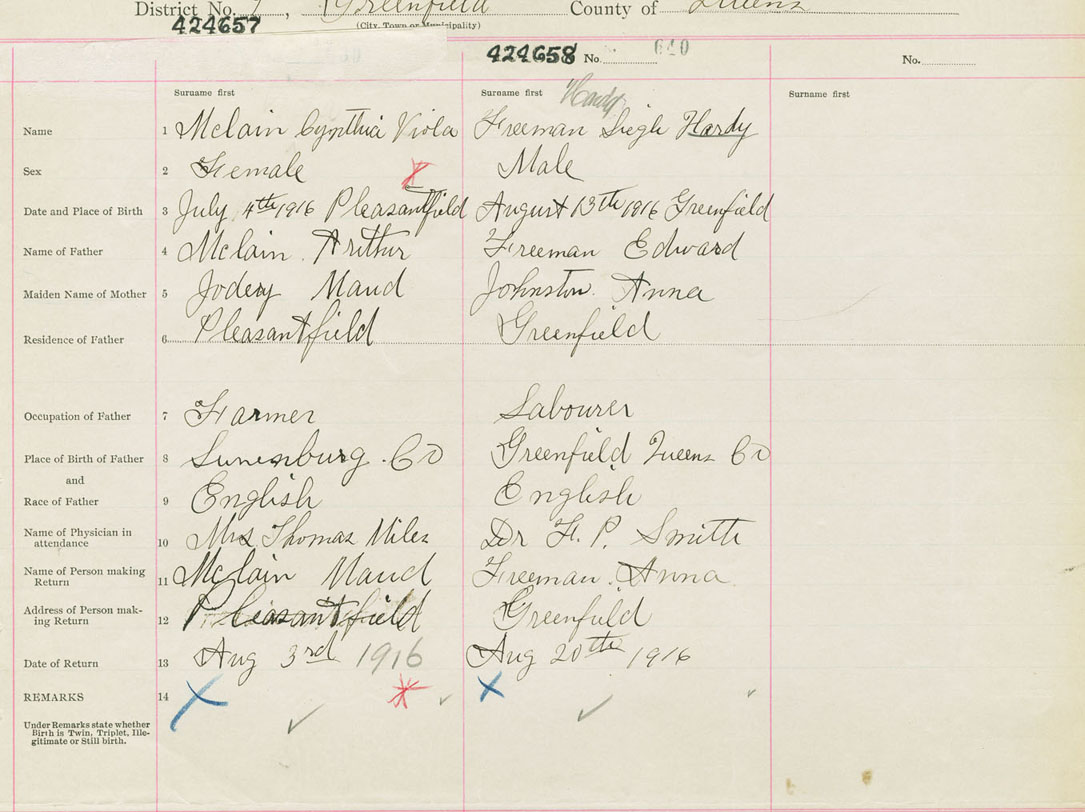 District No. 7, Greenfield County of Queens
(City, Town or Municipality)
424657
424658 No. 640 No.
Surname first Surname first Hardy Surname first
Name 1 Mclain Cynthia Viola Freeman Hardy
Sex 2 Female Male
Date and Place of Birth 3 July 4th 1916 Pleasantfield August 13th 1916 Greenfield
Name of Father 4 Mclain Arithur Freeman Edward
Maiden Name of Mother 5 Jodery Maud Johnston. Anna
Residence of Father 6 Pleasantfield Greenfield
Occupation of Father 7 Farmer Labourer
Place of Birth of Father 8 Lunenburg. Co Greenfield Queens Co
and
Race of Father 9 English English
Name of Physician in
attendance 10 Mrs Thomas Miles Dr F. P. Smith
Name of Person making
Return 11 Mclain Maud Freeman. Anna
Address of Person mak-
ing Return 12 Pleasantfield Greenfield
Date of Return 13 Aug 3rd 1916 Aug 20th 1916
REMARKS 14
Under Remarks state whether
Birth is Twin, Triplet, Ille-
gitimate or Still birth.